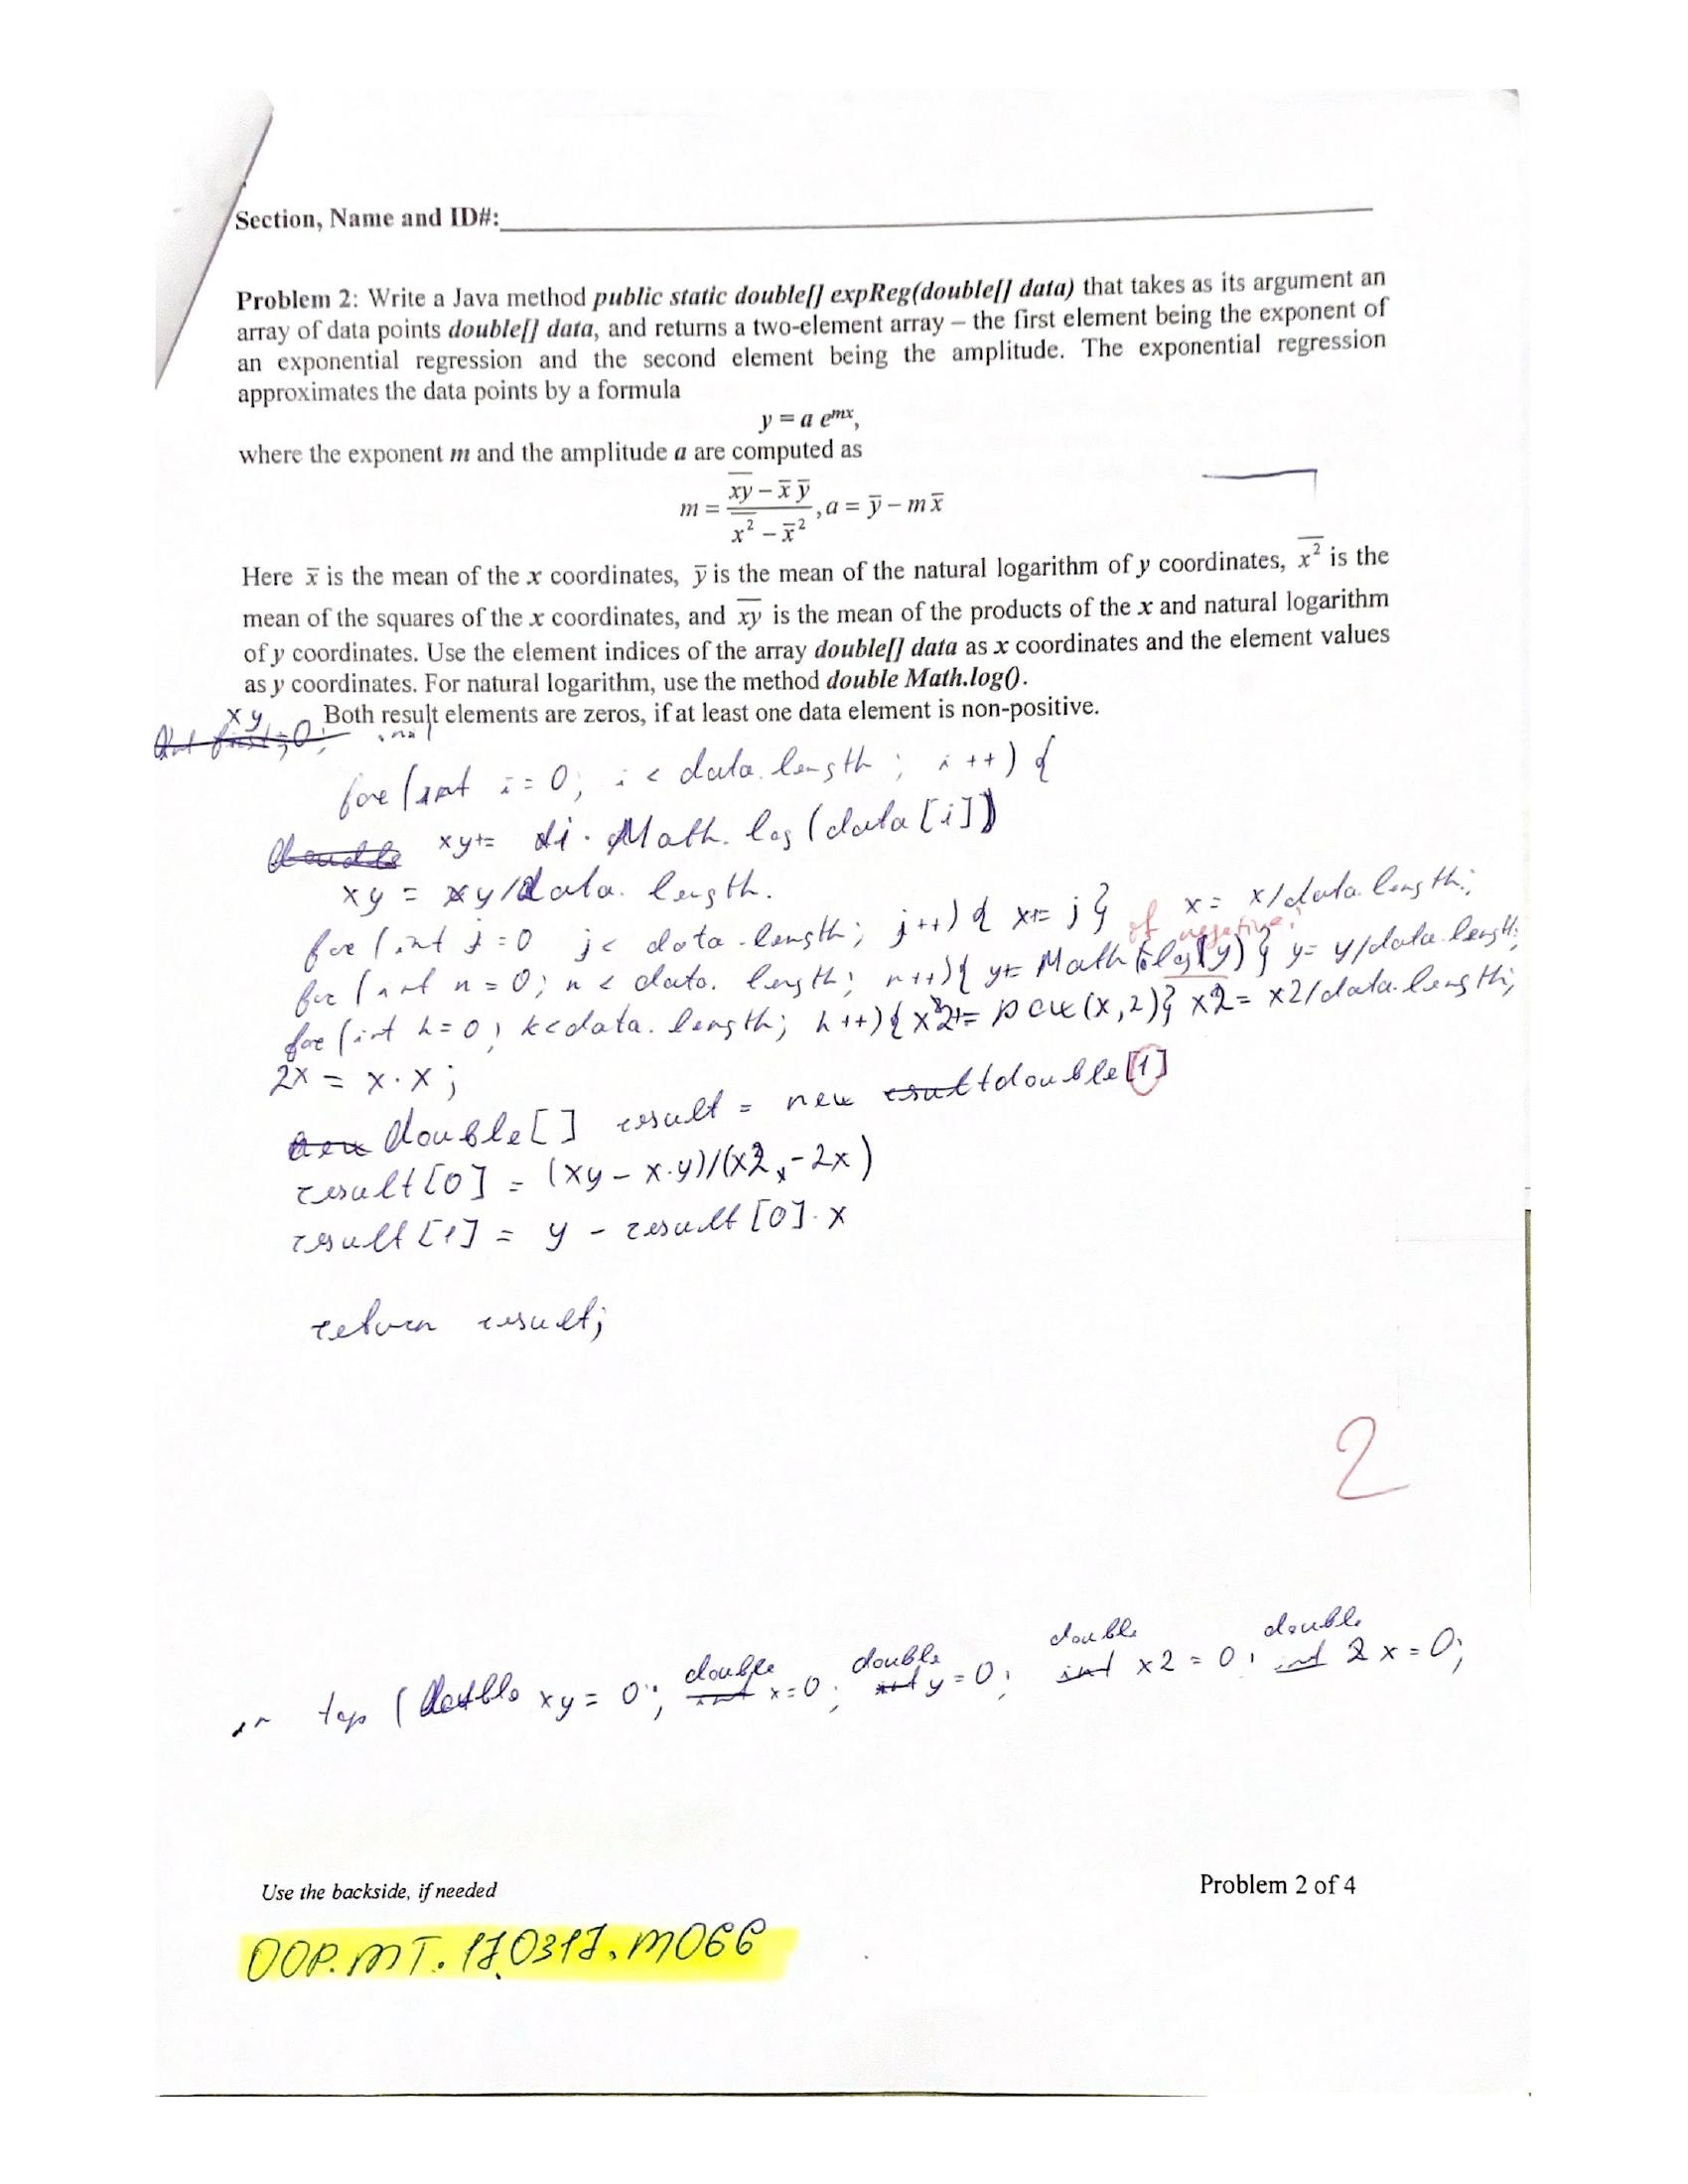 Section, Name and ID#:
Problem 2: Write a Java method public static double[] expReg(double[] data) that takes as its argument an
array of data points double[] data, and returns a two-element array – the first element being the exponent of
an exponential regression and the second element being the amplitude. The exponential regression
approximates the data points by a formula
y = a e^{mx},
where the exponent m and the amplitude a are computed as
m = \frac{\overline{xy} - \bar{x} \bar{y}}{\overline{x^2} - \bar{x}^2}, a = \bar{y} - m \bar{x}
Here x̄ is the mean of the x coordinates, ȳ is the mean of the natural logarithm of y coordinates, \overline{x^2} is the
mean of the squares of the x coordinates, and \overline{xy} is the mean of the products of the x and natural logarithm
of y coordinates. Use the element indices of the array double[] data as x coordinates and the element values
as y coordinates. For natural logarithm, use the method double Math.log().
Both result elements are zeros, if at least one data element is non-positive.
xy
for (int i = 0; i < data.length; i++) {
xy+= i · Math.log(data[i])
xy = xy/data.length.
for (int j = 0 j < data.length; j++) { x+= j } x = x/data.length;
if negative?
for (int n = 0; n < data.length; n++) { y+= Math log(y) } y = y/data.length;
for (int k = 0; k < data.length; k++) { x2+= pow(x,2) } x2 = x2/data.length;
2x = x·x;
double[] result = new double[1]
result[0] = (xy - x·y)/(x2 - 2x)
result[1] = y - result[0]·x
return result;
2
in top ( double xy = 0; double x = 0; double y = 0; double x2 = 0; double 2x = 0;
Use the backside, if needed
Problem 2 of 4
OOP.MT.170317.M066